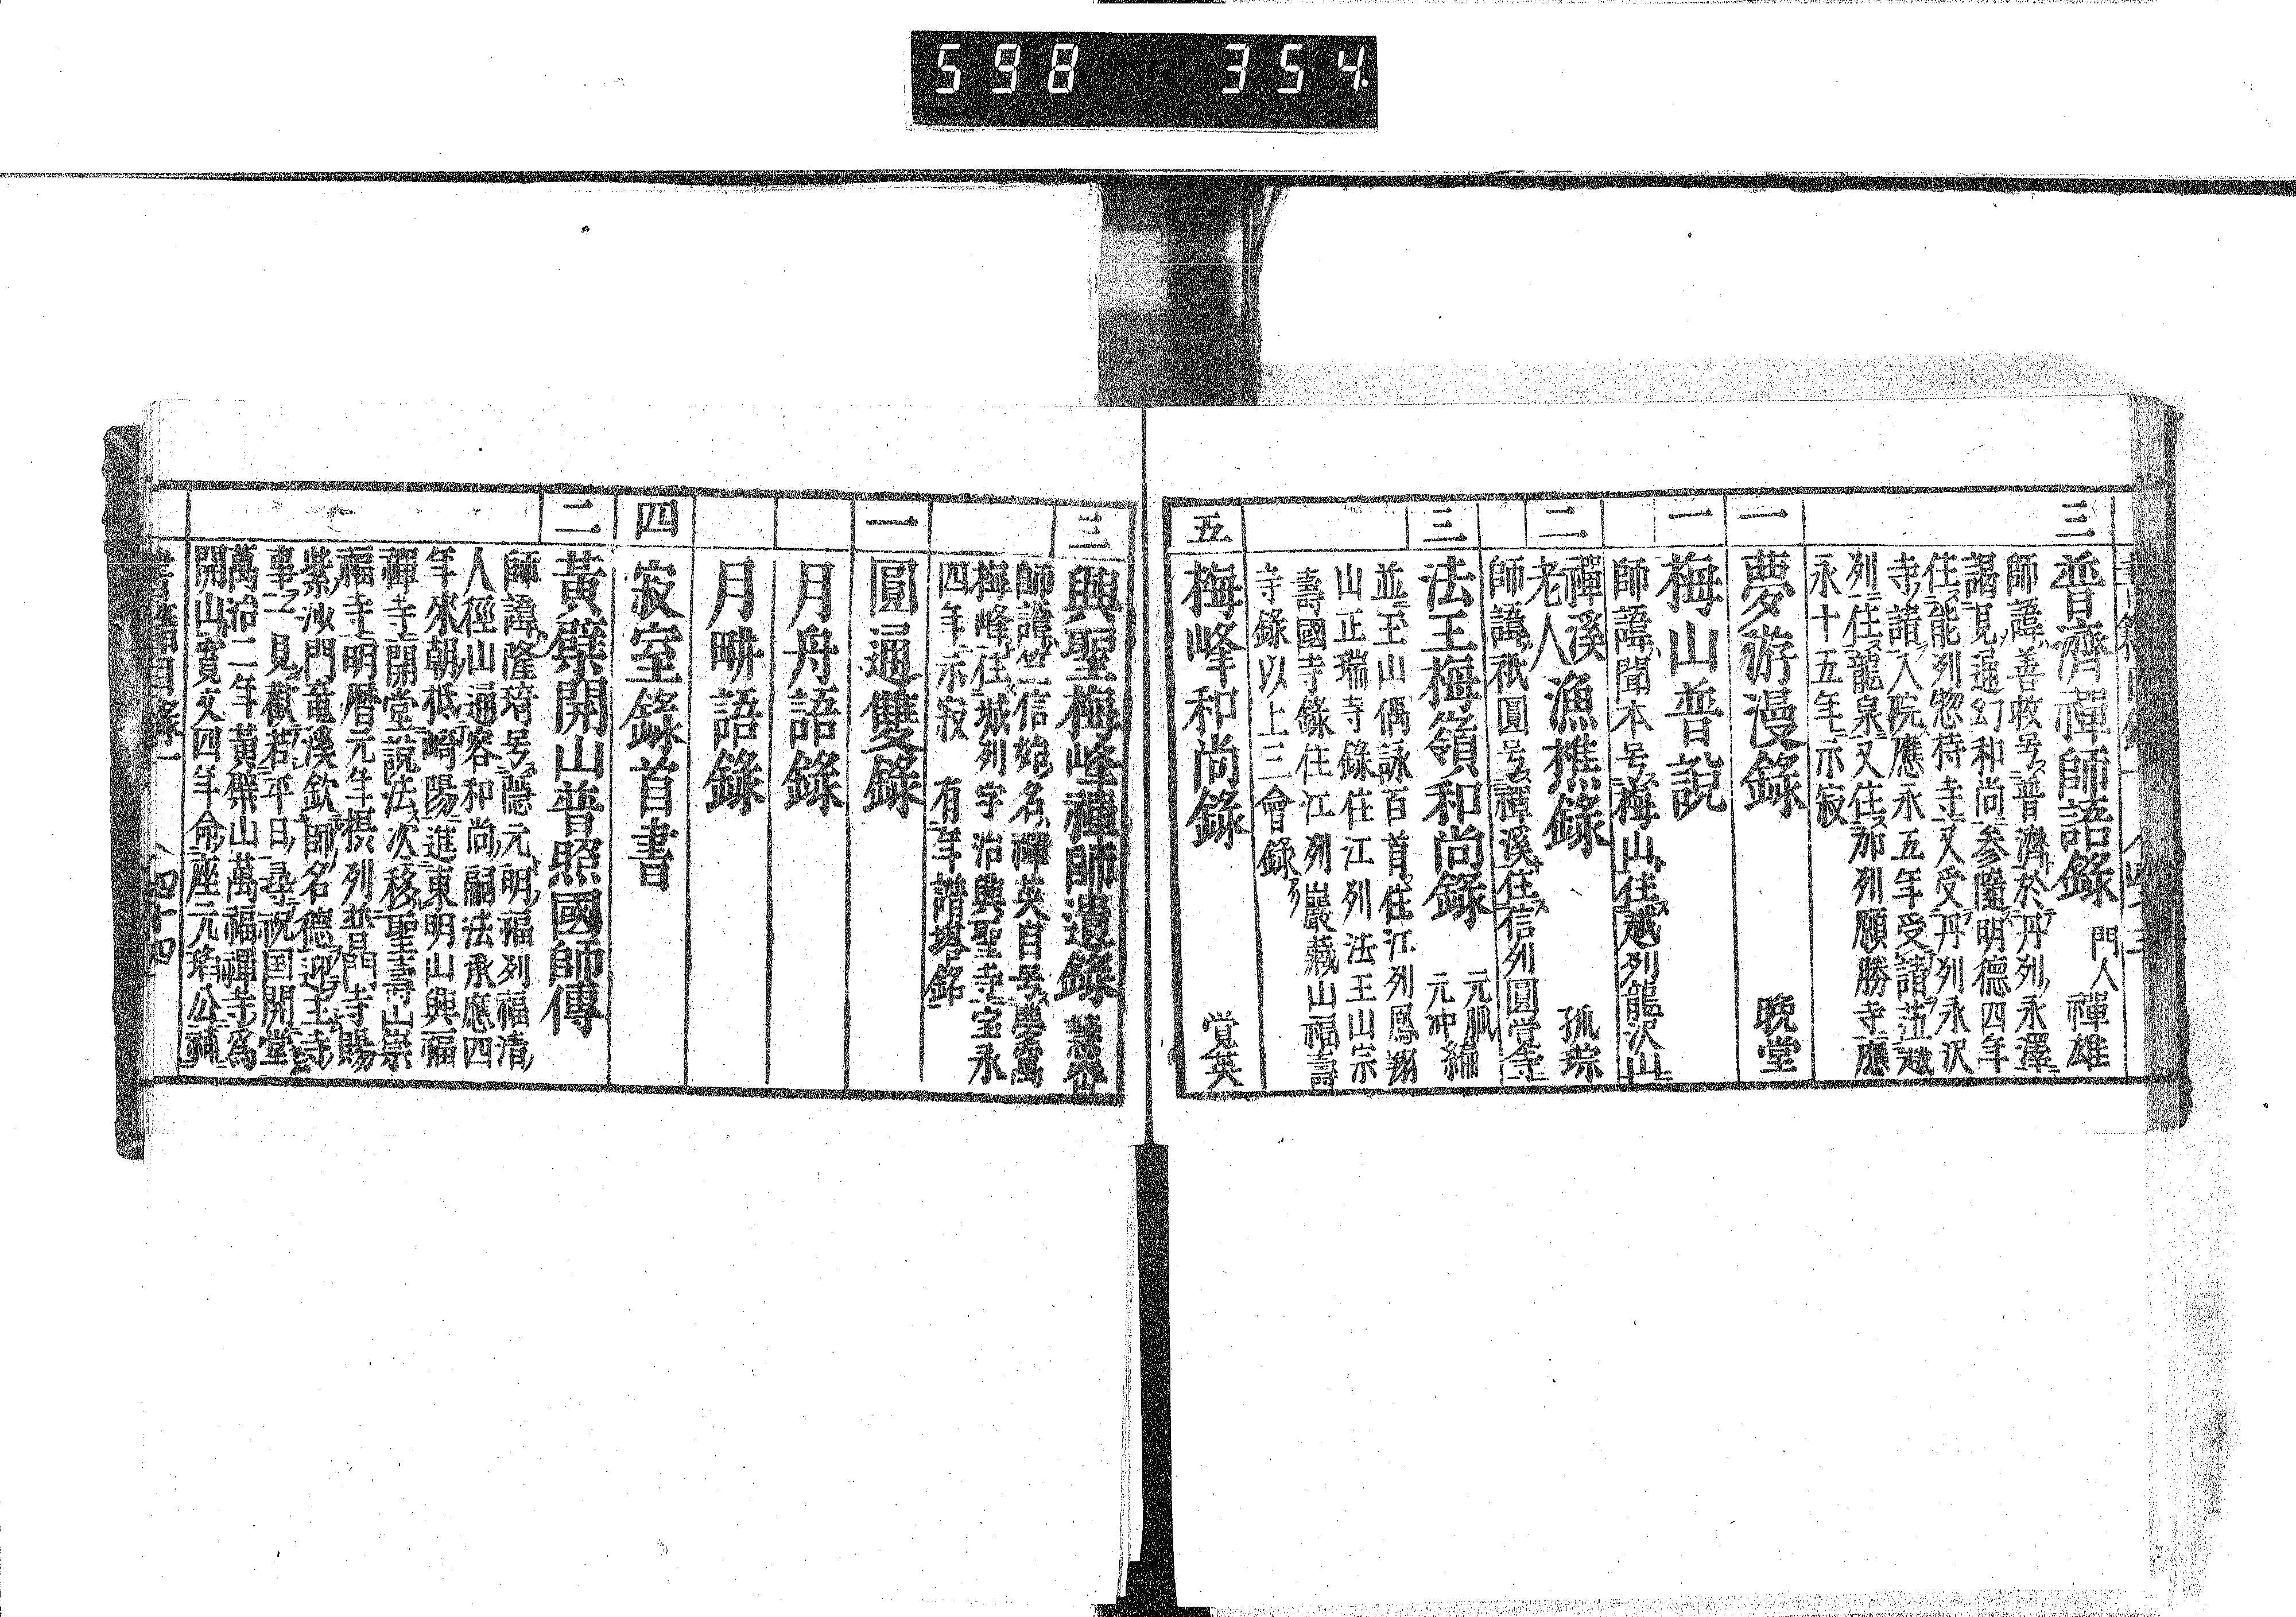 598 354
三
普濟禪師語錄 門人禪雄
師諱善救号普濟於丹列永澤
謁見通幻和尚参隨明德四年
住能列惣持寺又受丹列永沢
寺請入院應永五年受請莅越
列住龍泉又住加列願勝寺應
永十五年示寂
一
夢游漫錄 晩堂
一
梅山普說
師諱聞本号梅山住越列龍沢山
二
禪溪老人漁樵錄 孤琮
師諱祇圓号禪溪住信列圓覚寺
三
法王梅嶺和尚錄 元冲編
並王山偶詠百首住江列鳳翔
山正瑞寺錄住江列法王山宗
壽國寺錄住江列嚴藏山福壽
寺錄以上三會錄
五
梅峰和尚錄 覚英
三
興聖梅峰禪師遺錄
師諱竺信始名禪英自号農萬
梅峰住城列宇治興聖寺宝永
四年示寂 有年譜塔銘
一
圓通雙錄
月舟語錄
月畊語錄
四
寂室錄首書
二
黃檗開山普照國師傳
師諱隆琦号隱元明福列福清
人徑山通容和尚嗣法承應四
年來朝抵﨑陽進東明山興福
禪寺開堂說法次移聖壽山崇
福寺明曆元年摂列普門寺賜
紫沙門竜溪欽師名德迎主寺
事一見歡若平日尋祝国開堂
萬治二年黃檗山萬福禪寺爲
開山寛文四年命座元瑫公補
書籍目錄一 四十四